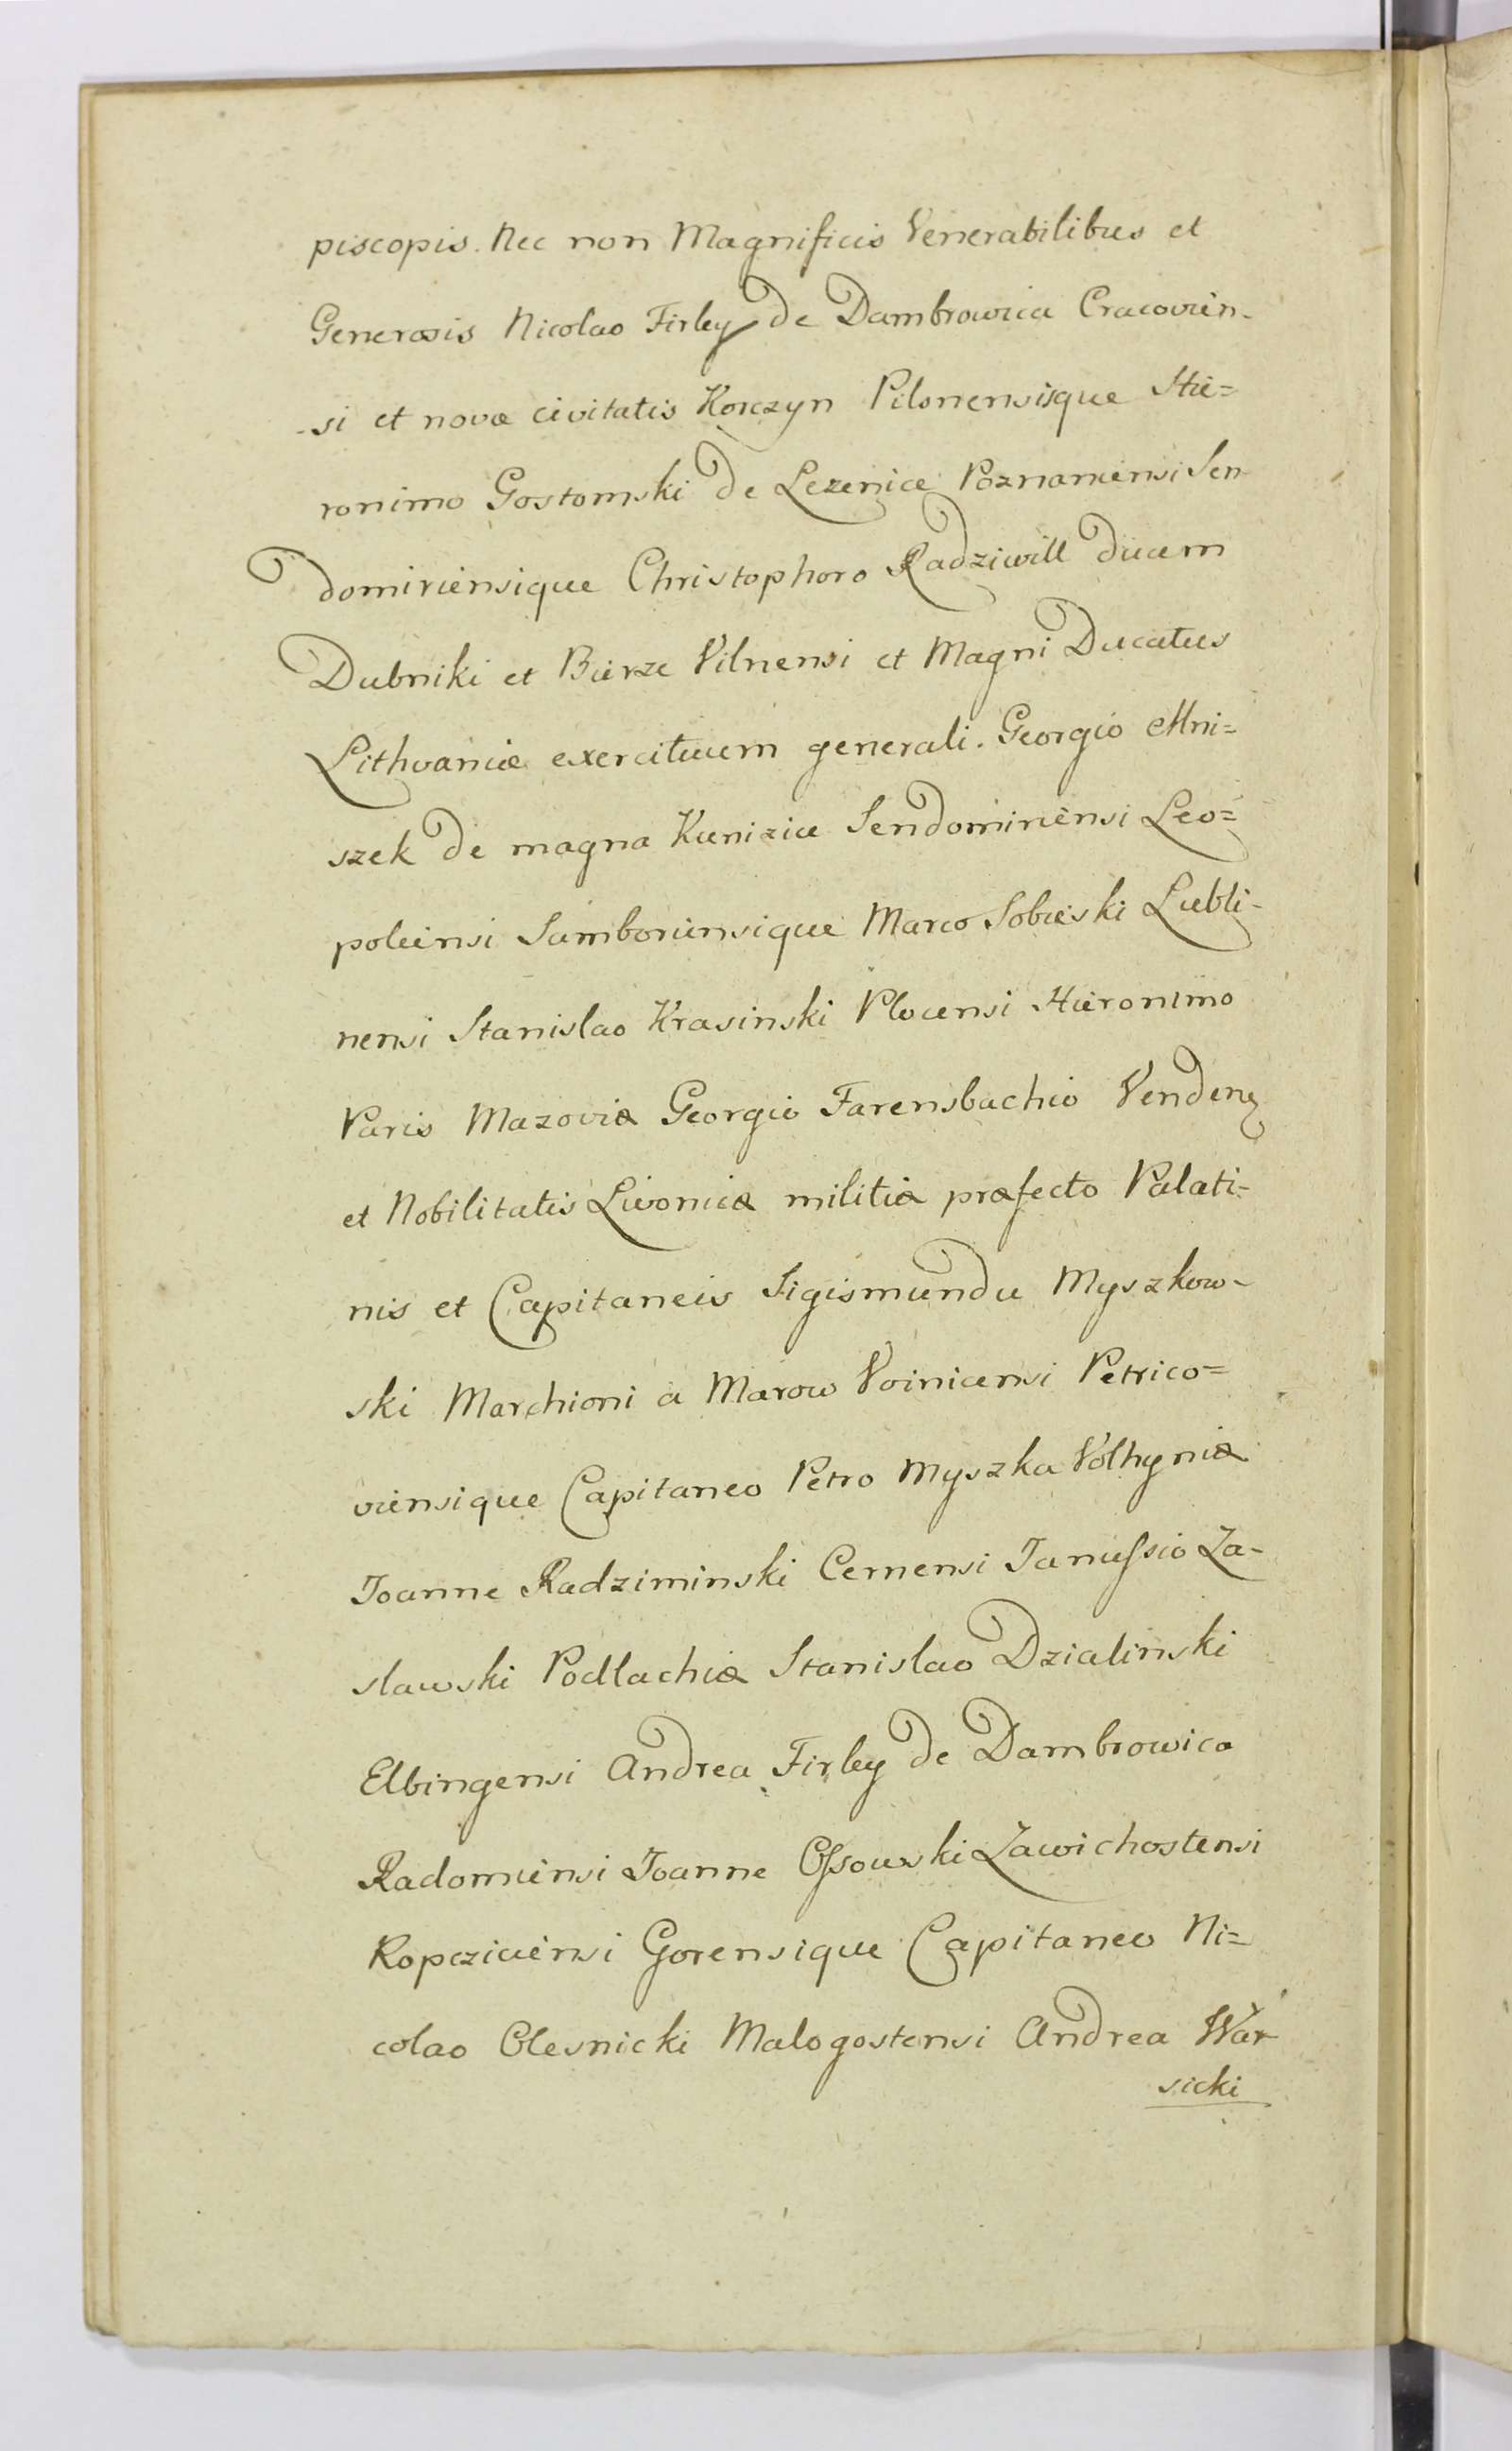 piscopis. Nec non Magnificis Venerabilibus et
Generosis Nicolao Firley de Dambrowica Cracovien-
-si et novæ civitatis Korczyn Pilonensisque Hie=
ronimo Gostomski de Lezenice Poznaniensi Sen
domiriensique Christophoro Radziwill ducem
Dubniki et Bierze Vilnensi et Magni Ducatus
Lithvaniæ exercituum generali. Georgio Mni=
szek de magna Kunizice Sendomiriensi Leo=
poliensi Samboriensique Marco Sobieski Lubli-
nensi Stanislao Krasinski Plocensi Hieronimo
Paris Mazoviæ Georgio Farensbachio Venden
et Nobilitatis Livoniæ militiæ præfecto Palati-
nis et Capitaneis Sigismundu Myszkow-
ski Marchioni a Marow Voinicensi Petrico=
viensique Capitaneo Petro Myszka Volhyniæ
Joanne Radziminski Cernensi Janussio Za-
slawski Podlachiæ Stanislao Dzialinski
Elbingensi Andrea Firley de Dambrowica
Radomiensi Joanne Ossowski Zawichostensi
Ropcziciensi Gorensique Capitaneo Ni=
colao Olesnicki Malogostensi Andrea War
sicki